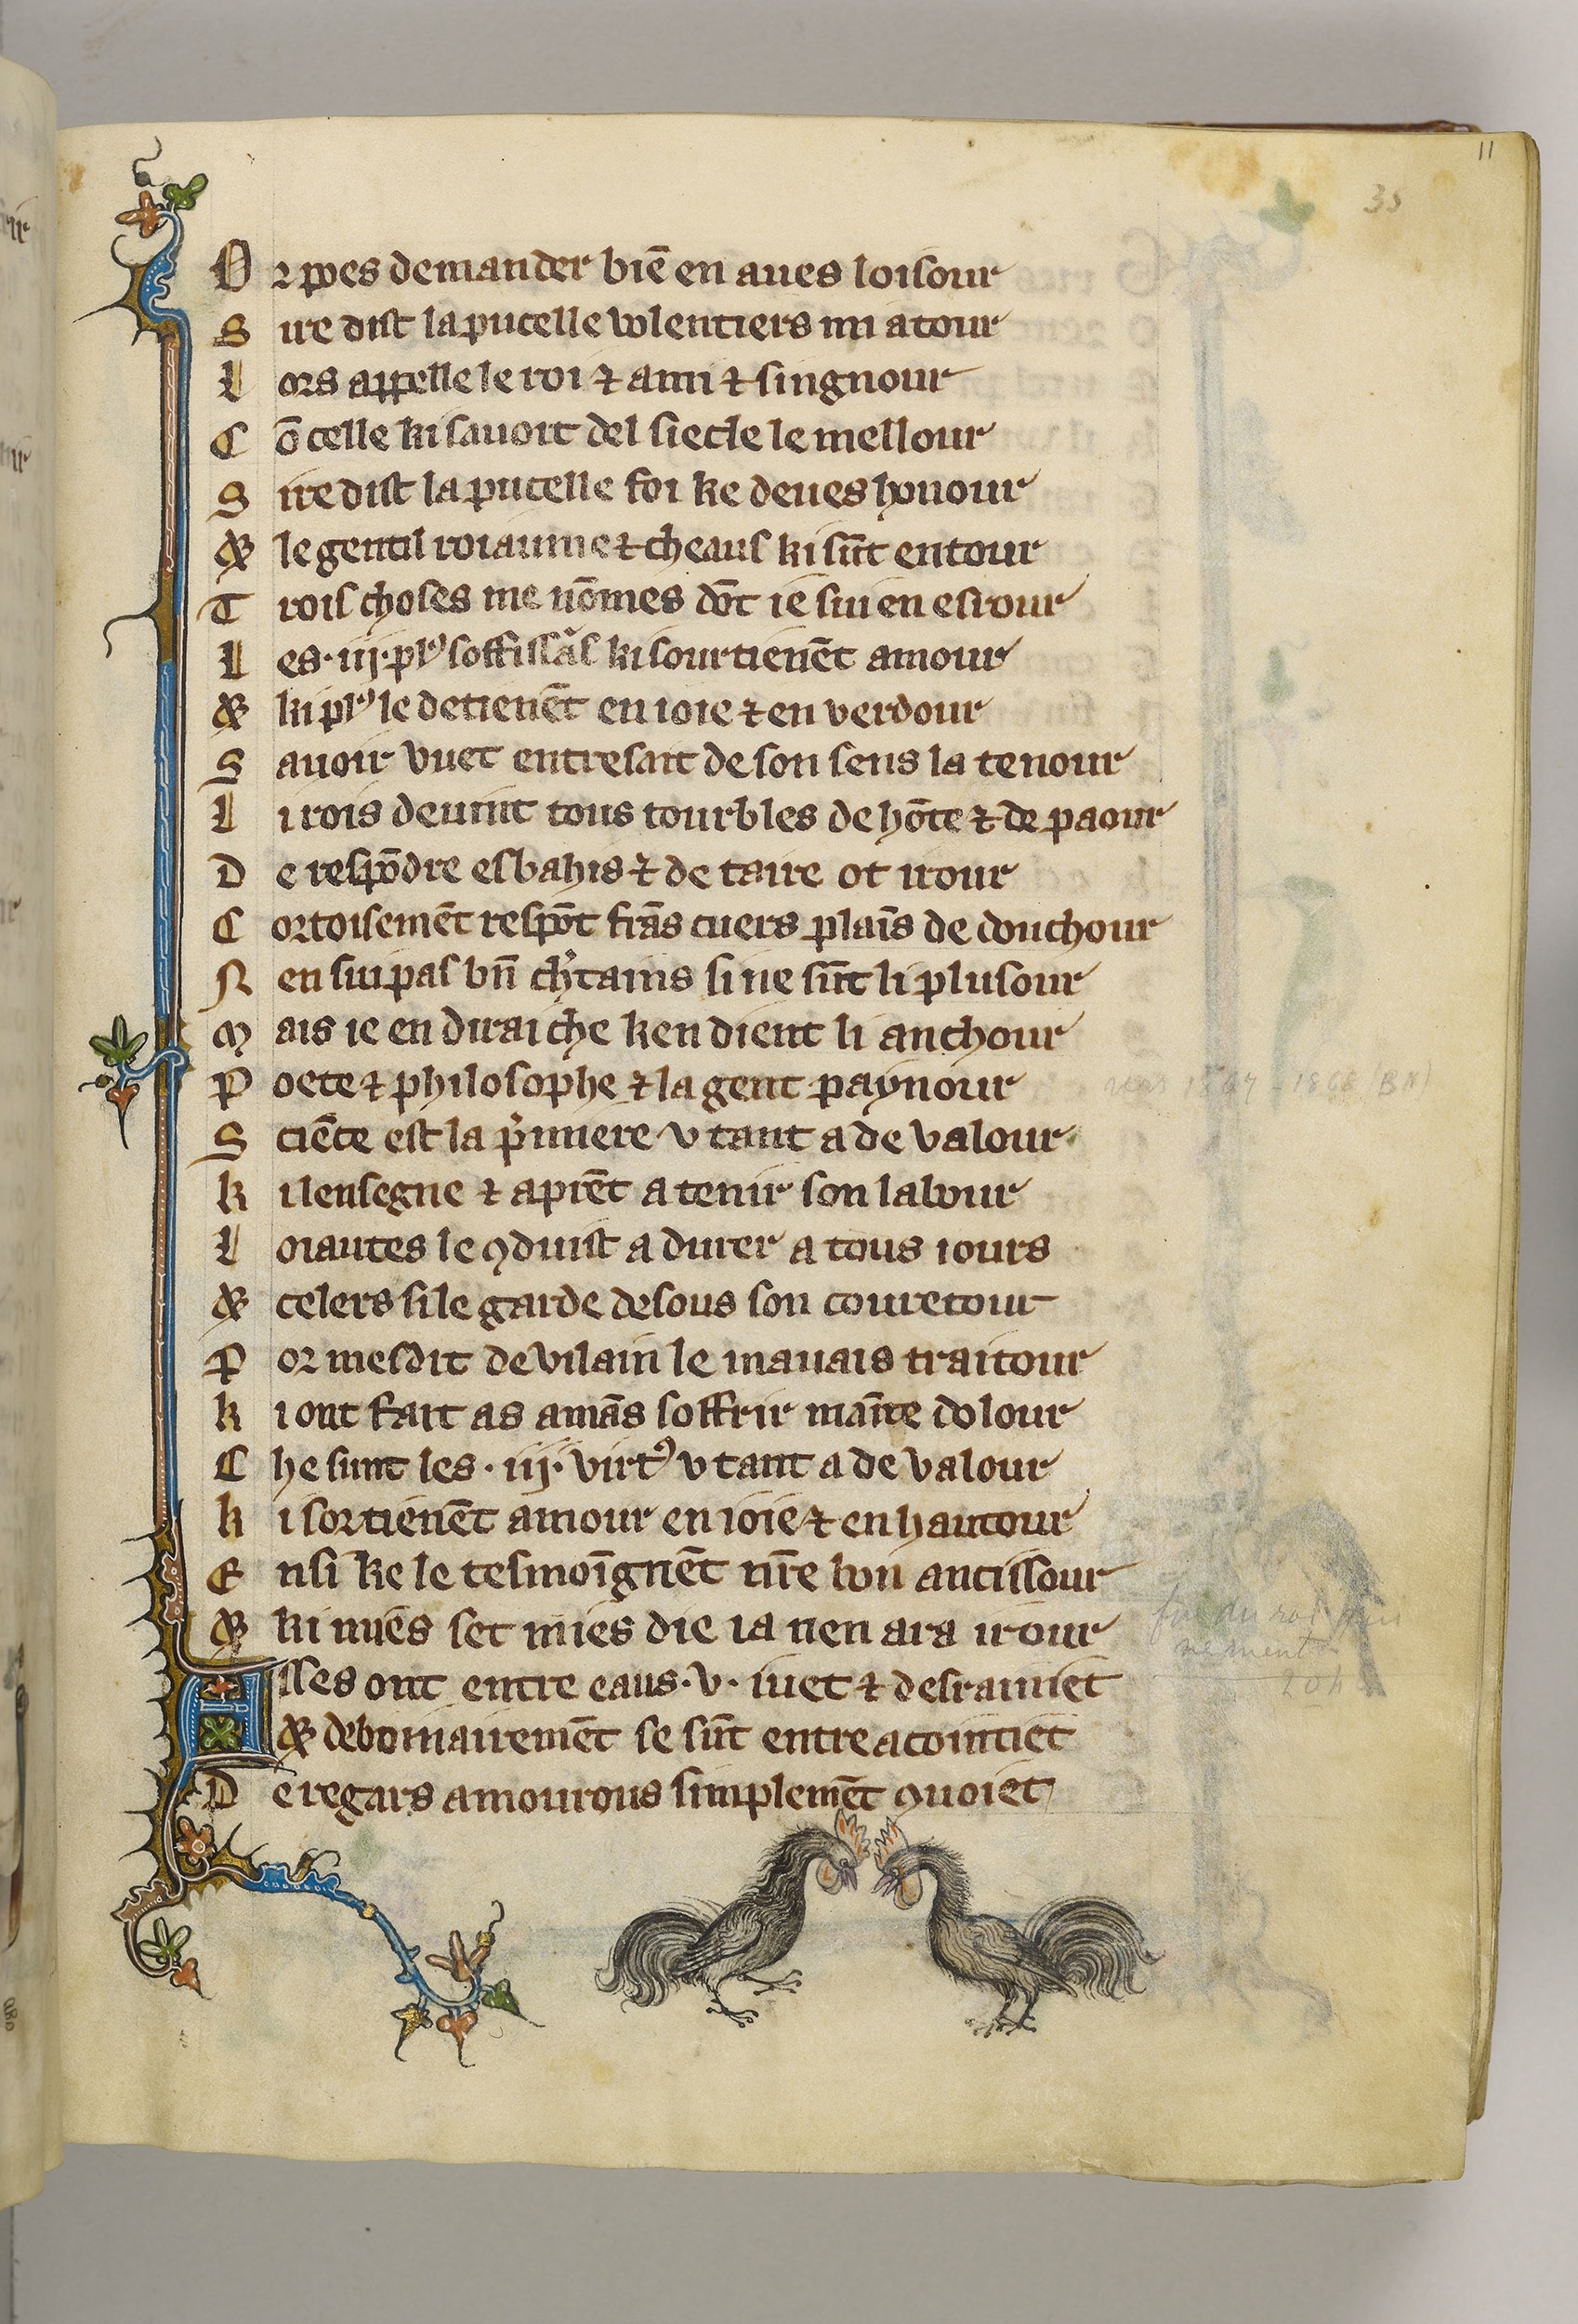 11
35
O r poes demander biē en aues loisour
S ire dist la pucelle volentiers mi atour
L ors appelle le roi ⁊ ami ⁊ singnour
C ō celle ki sauoit del siecle le mellour
S ire dist la pucelle foi ke deues honour
⁊ le gentil roiaume ⁊ cheaus ki sūt entour
T rois choses me nōmes dōt ie sui en esrour
L es .iij. plꝰ soffissās ki sourtienēt amour
⁊ ki plꝰ le detienēt en ioie ⁊ en verdour
S auoir vuet entresait de son sens la tenour
L i rois deuint tous tourbles de hōte ⁊ de paour
D e respōdre esbahis ⁊ de taire ot irour
C ortoisemēt respōt frās cuers plaīs de douchour
N en sui pas bn̄ ch'tains si ne sūt li plusour
M ais ie en dirai che ken dient li anchour
P oete ⁊ philosophe ⁊ la gent paynour
S ciēce est la p'miere v tant a de valour
K i lensegne ⁊ aprēt a tenir son labour
L oiautes le ꝯduist a durer a tous iours
⁊ celers si le garde desous son couretour
P or mesdit de vilain le mauais traitour
K i ont fait as amās soffrir maīte dolour
C he sunt les .iij. virtꝰ v tant a de valour
K i sortienēt amour en ioie ⁊ en hautour
E nsi ke le tesmoīgnēt nr̄e bon ancissour
⁊ ki miēs set miēs die ia nen ara irour
A sses ont entre eaus .v. iuet ⁊ desrainiet
⁊ debonairemēt se sūt entre acointiet
D e regars amourous simplemēt ꝯuoiet